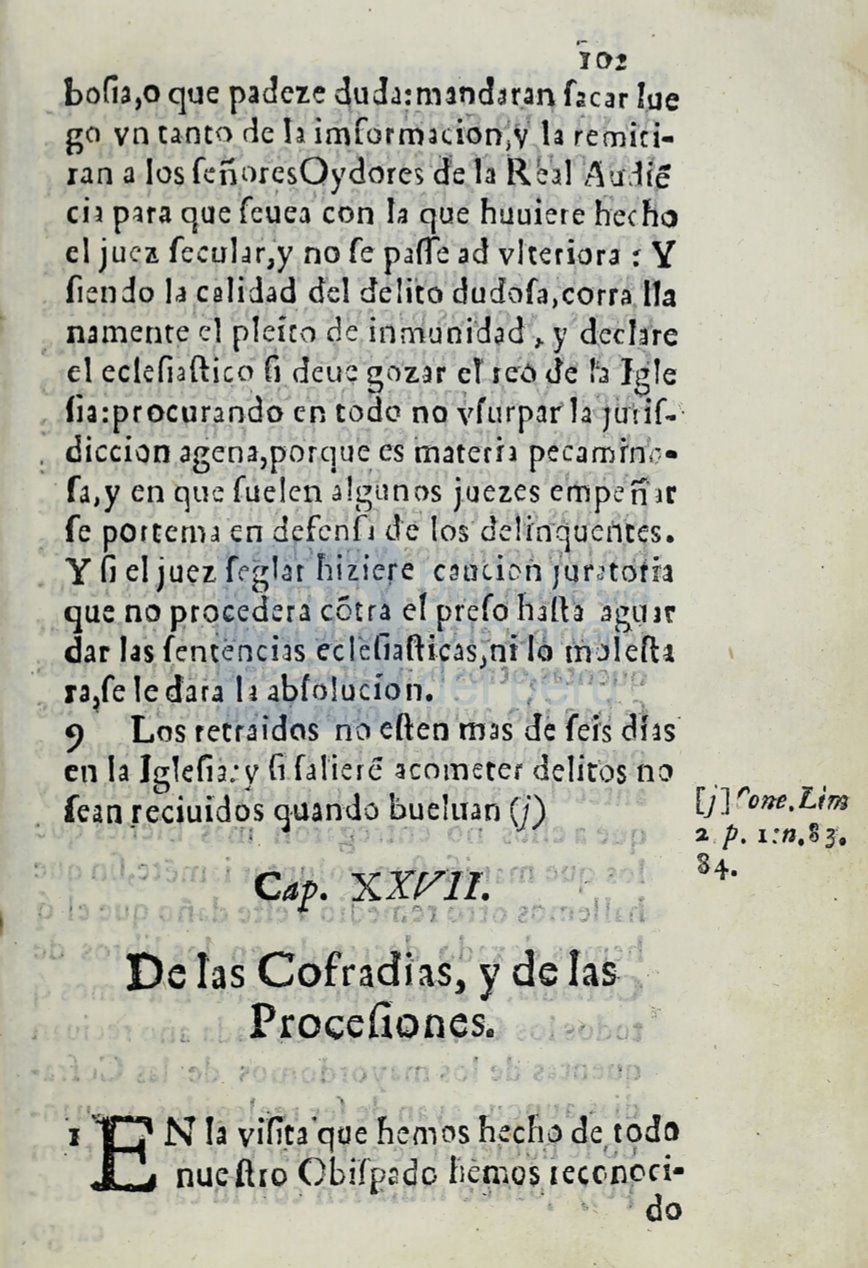 102
bosia,o que padeze duda:mandaran sacar lue
go vn tanto de la imformacion,y la remiti-
ran a los señoresOydores de la Real Audiẽ
cia para que seuea con la que huuiere hecho
el juez secular,y no se passe ad vlteriora : Y
siendo la calidad del delito dudosa,corra lla
namente el pleito de inmunidad , y declare
el eclesiastico si deue gozar el reo de la Igle
sia:procurando en todo no vsurpar la juris-
diccion agena,porque es materia pecamino-
sa,y en que suelen algunos juezes empeñar
se portema en defensa de los delinquentes.
Y si el juez seglar hiziere caucion juratoria
que no procedera cõtra el preso hasta aguar
dar las sentencias eclesiasticas,ni lo molesta
ra,se le dara la absolucion.
9 Los retraidos no esten mas de seis dias
en la Iglesia:y si salierẽ acometer delitos no
sean reciuidos quando bueluan (j)
[j] Conc.Lim
2 p. 1:n.83.
84.
Cap. XXVII.
De las Cofradias, y de las
Procesiones.
1 EN la visita que hemos hecho de todo
nuestro Obispado hemos reconoci-
do